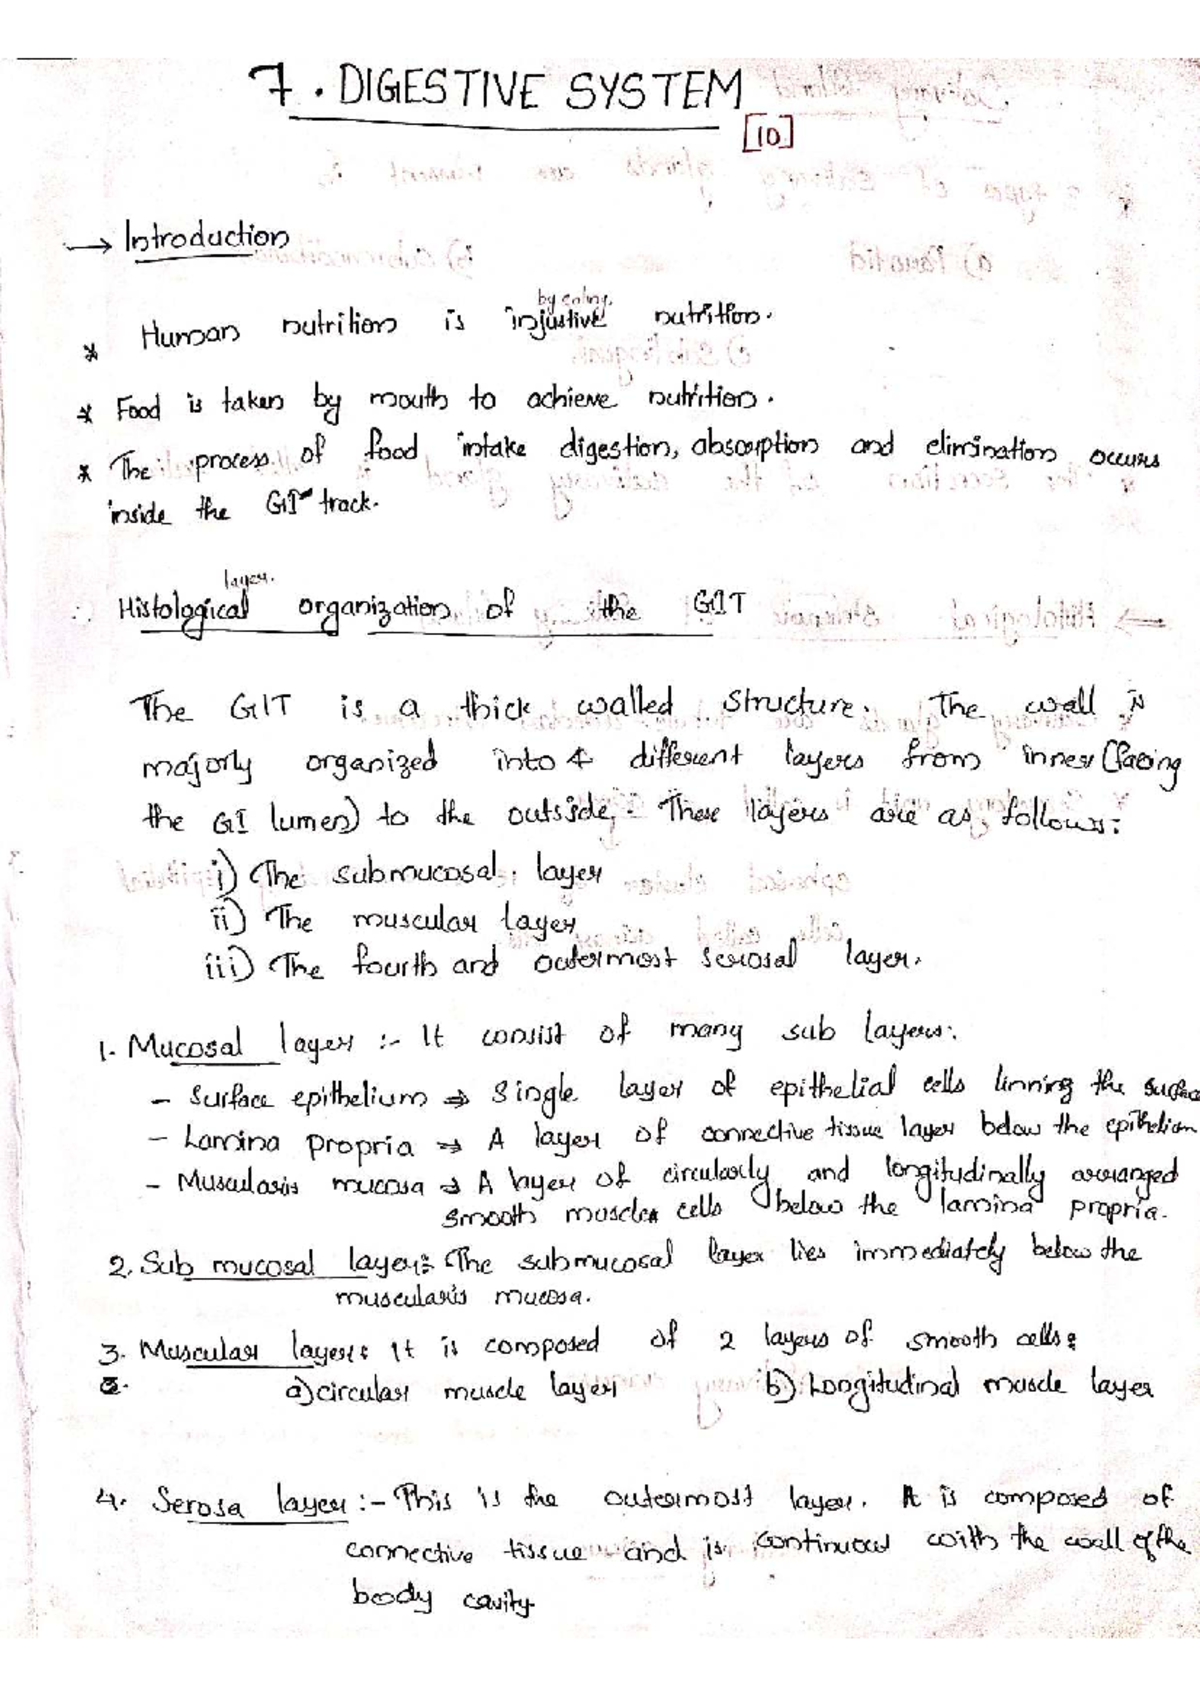 7. DIGESTIVE SYSTEM
[10]
→ Introduction
by eating.
* Human nutrition is injustive nutrition.
* Food is taken by mouth to achieve nutrition.
* The process of food intake digestion, absorption and elimination occurs
inside the GI track.
layer.
Histological organization of the GIT
The GIT is a thick walled structure. The wall is
majorly organized into 4 different layers from inner (facing
the GI lumen) to the outside. These layers are as follows:
i) The submucosal layer
ii) The muscular layer
iii) The fourth and outermost serosal layer.
1. Mucosal layer :- It consist of many sub layers:
- Surface epithelium ⇒ Single layer of epithelial cells linning the surface
- Lamina propria ⇒ A layer of connective tissue layer below the epithelian
- Muscularis mucosa ⇒ A layer of circularly and longitudinally arranged
smooth muscles cells below the lamina propria.
2. Sub mucosal layer: The submucosal layer lies immediately below the
muscularis mucosa.
3. Muscular layer: It is composed of 2 layers of smooth cells:
a) circular muscle layer b) Longitudinal muscle layer
4. Serosa layer :- This is the outermost layer. It is composed of
connective tissue and is continuous with the wall of the
body cavity.